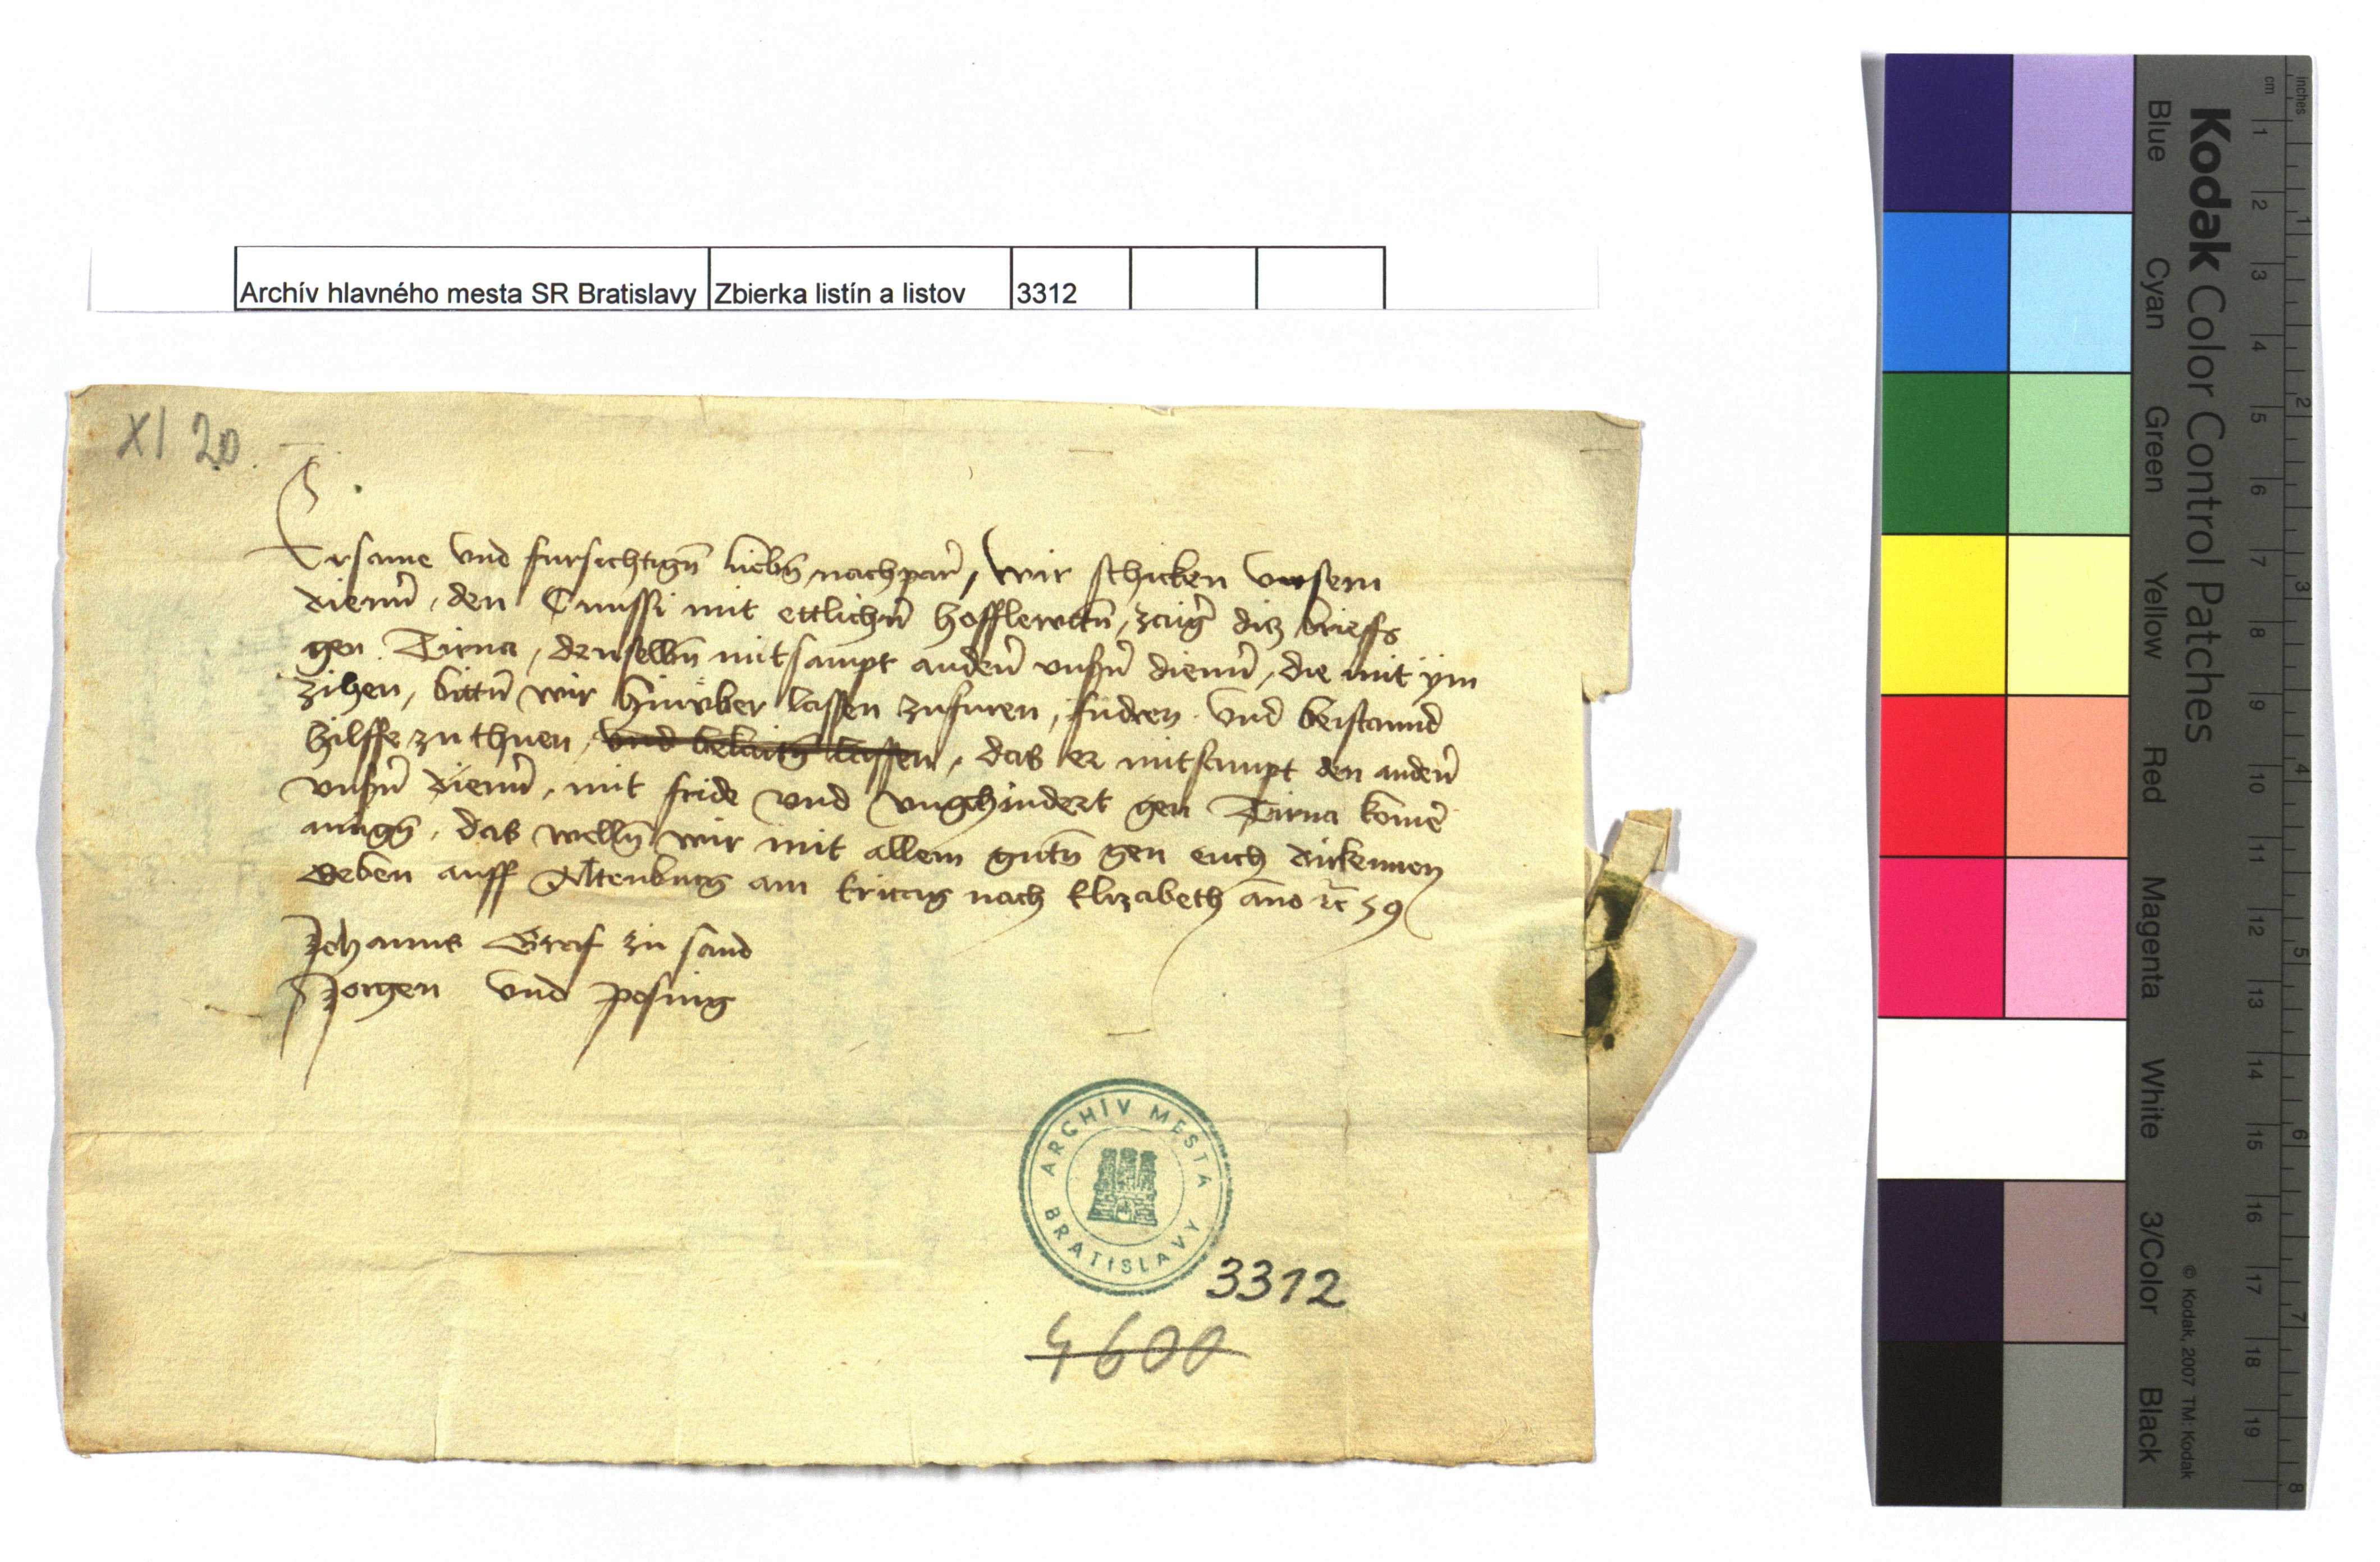 Archív hlavného mesta SR Bratislavy Zbierka listín a listov 3312
XI 20
Ersame vnd fursichtigñ liebñ nachpar̃, Wir schicken vnsern
diener̃, den Cnussi mit ettlichñ hofflewtñ, zaiger̃ diz brieffs
gen Tirna, denselbñ mitsampt ander̃ vnsẽrn diener̃, die mit ÿm
zihen, bittñ wir hinv̈ber lassen zufuren, fudren vnd beistannd
hilffe zu thuen, vnd belaitñ lassen, das er mitsampt den ander̃
vnsẽrn diener̃, mit fride vnd vngehindert gen Tirna komẽ
mugñ, das wellñ wir mit allem gutñ gen euch dirkennen
Geben auff Altenburg am Eritag nach Elizabeth ãno ꝛc̃ 59
Johanns Graf zu sand
Jorgen vnd posing
ARCHÍV MESTA
BRATISLAVY
3312
4600
Kodak Color Control Patches
Blue Cyan Green Yellow Red Magenta White 3/Color Black
© Kodak, 2007 TM: Kodak
inches 1 2 3 4 5 6 7 8
cm 1 2 3 4 5 6 7 8 9 10 11 12 13 14 15 16 17 18 19